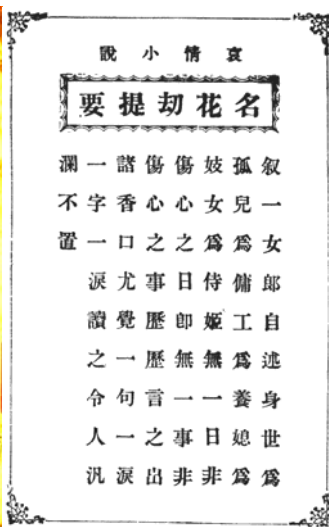 哀情小說
名花刧提要
叙一女郎自述身世爲
孤兒爲傭工爲養媳爲
妓女爲侍姬無一日非
傷心之日即無一事非
傷心之事歷歷言之出
諸香口尤覺一句一淚
一字一淚讀之令人汎
瀾不置